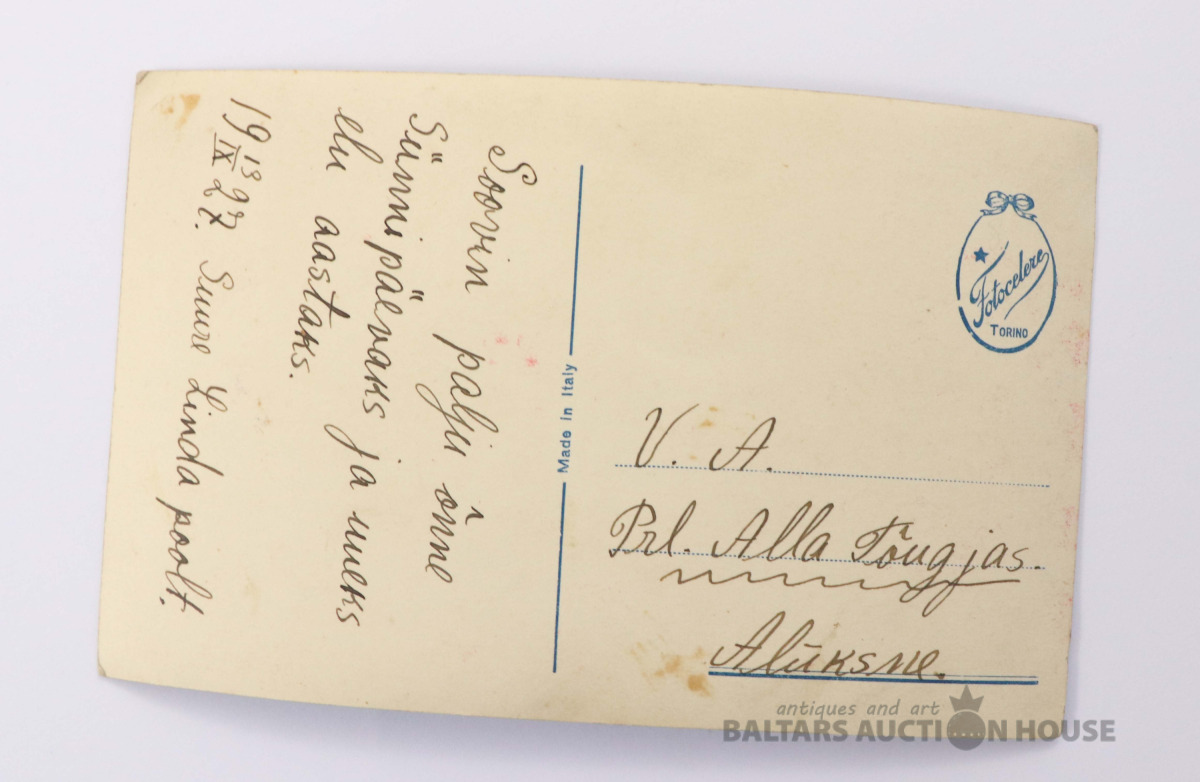 Soovin palju õnne
Sünnipäevaks ja uueks
elu aastaks.
19 13/IX 27. Suure Linda poolt.
Made in Italy
Fotocelere
TORINO
V. A.
Prl. Alla Tõugjas.
Alūksne.
antiques and art
BALTARS AUCTION HOUSE